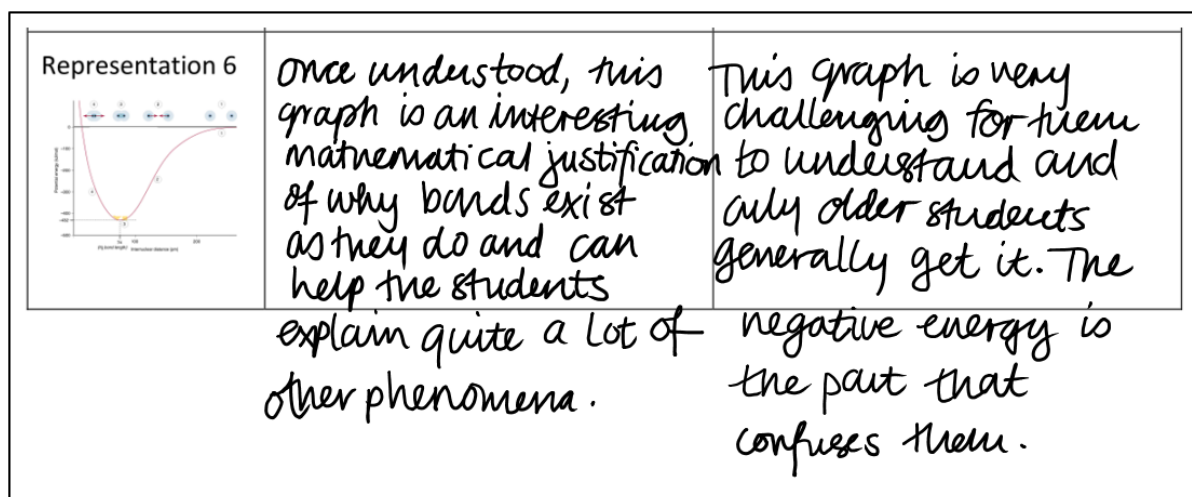 Representation 6
once understood, this
graph is an interesting
mathematical justification
of why bonds exist
as they do and can
help the students
explain quite a lot of
other phenomena.
This graph is very
challenging for them
to understand and
only older students
generally get it. The
negative energy is
the part that
confuses them.